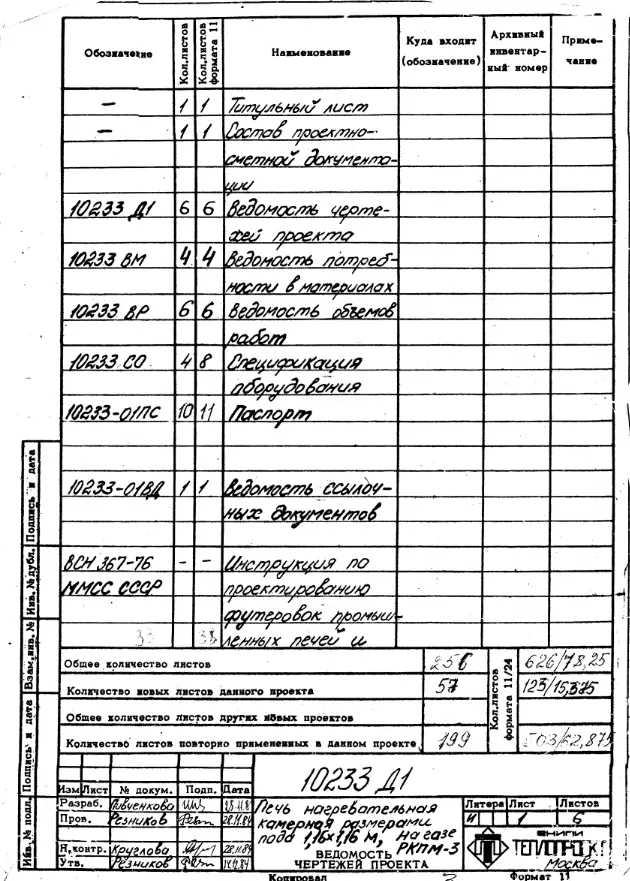 Обозначение Кол.листов Кол.листов формата 11 Наименование Куда входит (обозначение) Архивный инвентарный номер Примечание
— 1 1 Титульный лист
— 1 1 Состав проектно-
сметной документа-
ции
10233 Д1 6 6 Ведомость черте-
жей проекта
10233 ВМ 4 4 Ведомость потреб-
ности в материалах
10233 ВР 6 6 Ведомость объемов
работ
10233 СО 4 8 Спецификация
оборудования
10233-01ПС 10 11 Паспорт
10233-01ВД 1 1 Ведомость ссылоч-
ных документов
ВСН 367-76 - - Инструкция по
ММСС СССР проектированию
футеровок промыш-
33 38 ленных печей и
Общее количество листов 256 626/78,25
Количество новых листов данного проекта 57 123/15,375
Общее количество листов других новых проектов
Количество листов повторно примененных в данном проекте 199 503/62,875
Кол.листов формата 11/24
Подпись и дата
Инв.№ дубл.
Взам.инв.№
Подпись и дата
Инв.№ подл.
10233 Д1
Изм Лист № докум. Подп. Дата
Разраб. Пров. Резников 28.11.84
Н.контр. Круглова
Утв. Резников
Печь нагревательная
камерная размерами
пода 1,16х1,16 м, на газе
РКПМ-3
ВЕДОМОСТЬ
ЧЕРТЕЖЕЙ ПРОЕКТА
Литера Лист Листов
И 1 6
ВНИПИ
ТЕПЛОПРОЕКТ
Москва
Копировал Формат 11